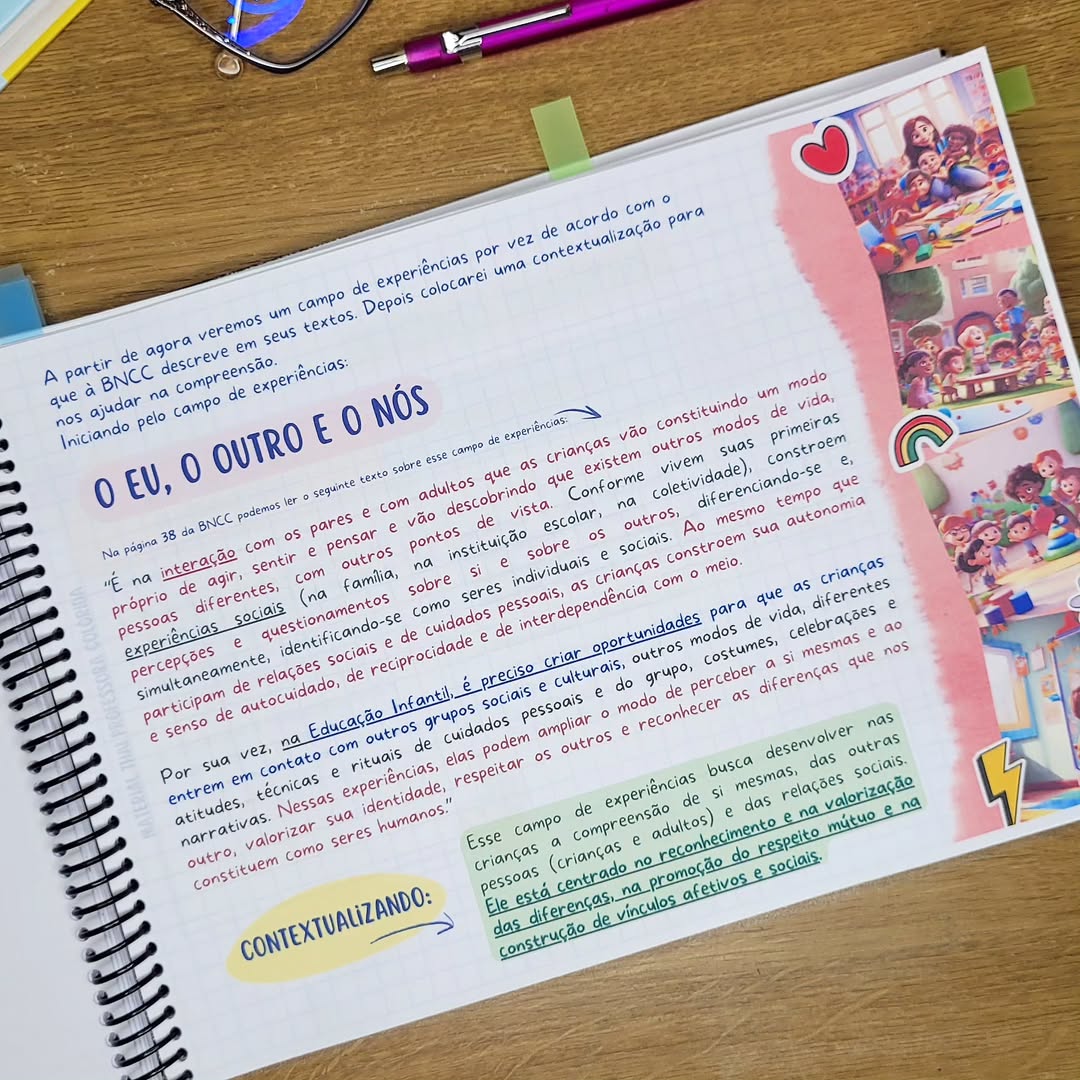 A partir de agora veremos um campo de experiências por vez de acordo com o
que à BNCC descreve em seus textos. Depois colocarei uma contextualização para
nos ajudar na compreensão.
Iniciando pelo campo de experiências:
O EU, O OUTRO E O NÓS
Na página 38 da BNCC podemos ler o seguinte texto sobre esse campo de experiências:
"É na interação com os pares e com adultos que as crianças vão constituindo um modo
próprio de agir, sentir e pensar e vão descobrindo que existem outros modos de vida,
pessoas diferentes, com outros pontos de vista. Conforme vivem suas primeiras
experiências sociais (na família, na instituição escolar, na coletividade), constroem
percepções e questionamentos sobre si e sobre os outros, diferenciando-se e,
simultaneamente, identificando-se como seres individuais e sociais. Ao mesmo tempo que
participam de relações sociais e de cuidados pessoais, as crianças constroem sua autonomia
e senso de autocuidado, de reciprocidade e de interdependência com o meio.
Por sua vez, na Educação Infantil, é preciso criar oportunidades para que as crianças
entrem em contato com outros grupos sociais e culturais, outros modos de vida, diferentes
atitudes, técnicas e rituais de cuidados pessoais e do grupo, costumes, celebrações e
narrativas. Nessas experiências, elas podem ampliar o modo de perceber a si mesmas e ao
outro, valorizar sua identidade, respeitar os outros e reconhecer as diferenças que nos
constituem como seres humanos."
CONTEXTUALiZANDO:
Esse campo de experiências busca desenvolver nas
crianças a compreensão de si mesmas, das outras
pessoas (crianças e adultos) e das relações sociais.
Ele está centrado no reconhecimento e na valorização
das diferenças, na promoção do respeito mútuo e na
construção de vínculos afetivos e sociais.
MATERIAL THAI PROFESSORA COLORIDA